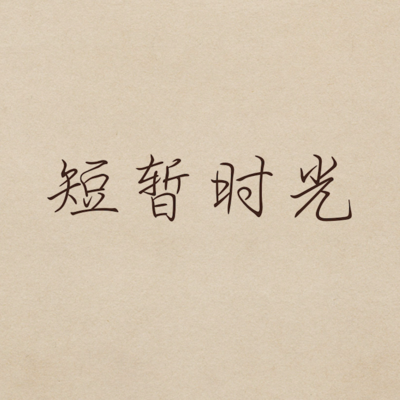 短暂时光